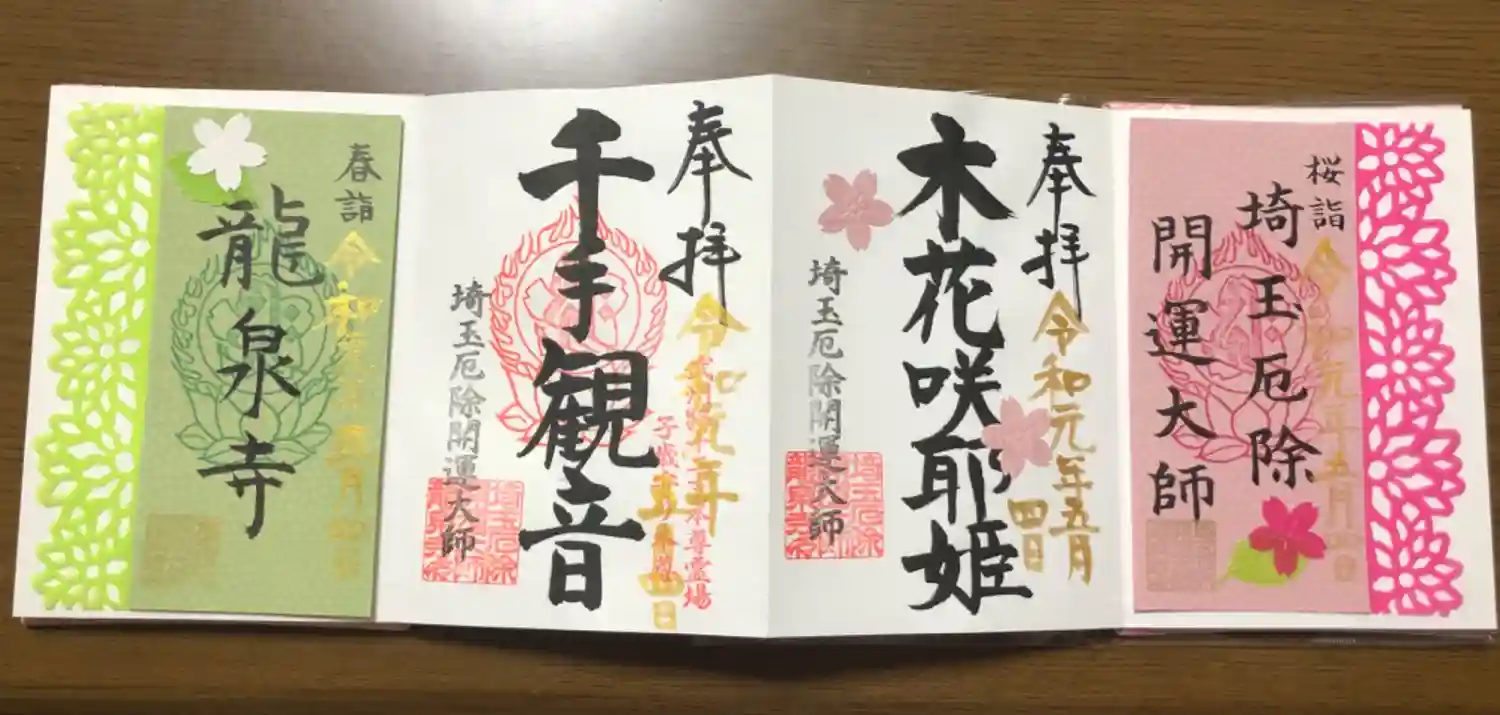 桜詣
令和元年五月四日
埼玉厄除
開運大師
奉拝
令和元年五月
四日
木花咲耶姫
埼玉厄除開運大師
奉拝
令和元年
五月四日
千手観音
埼玉厄除開運大師
春詣
令和元年五月四日
龍泉寺